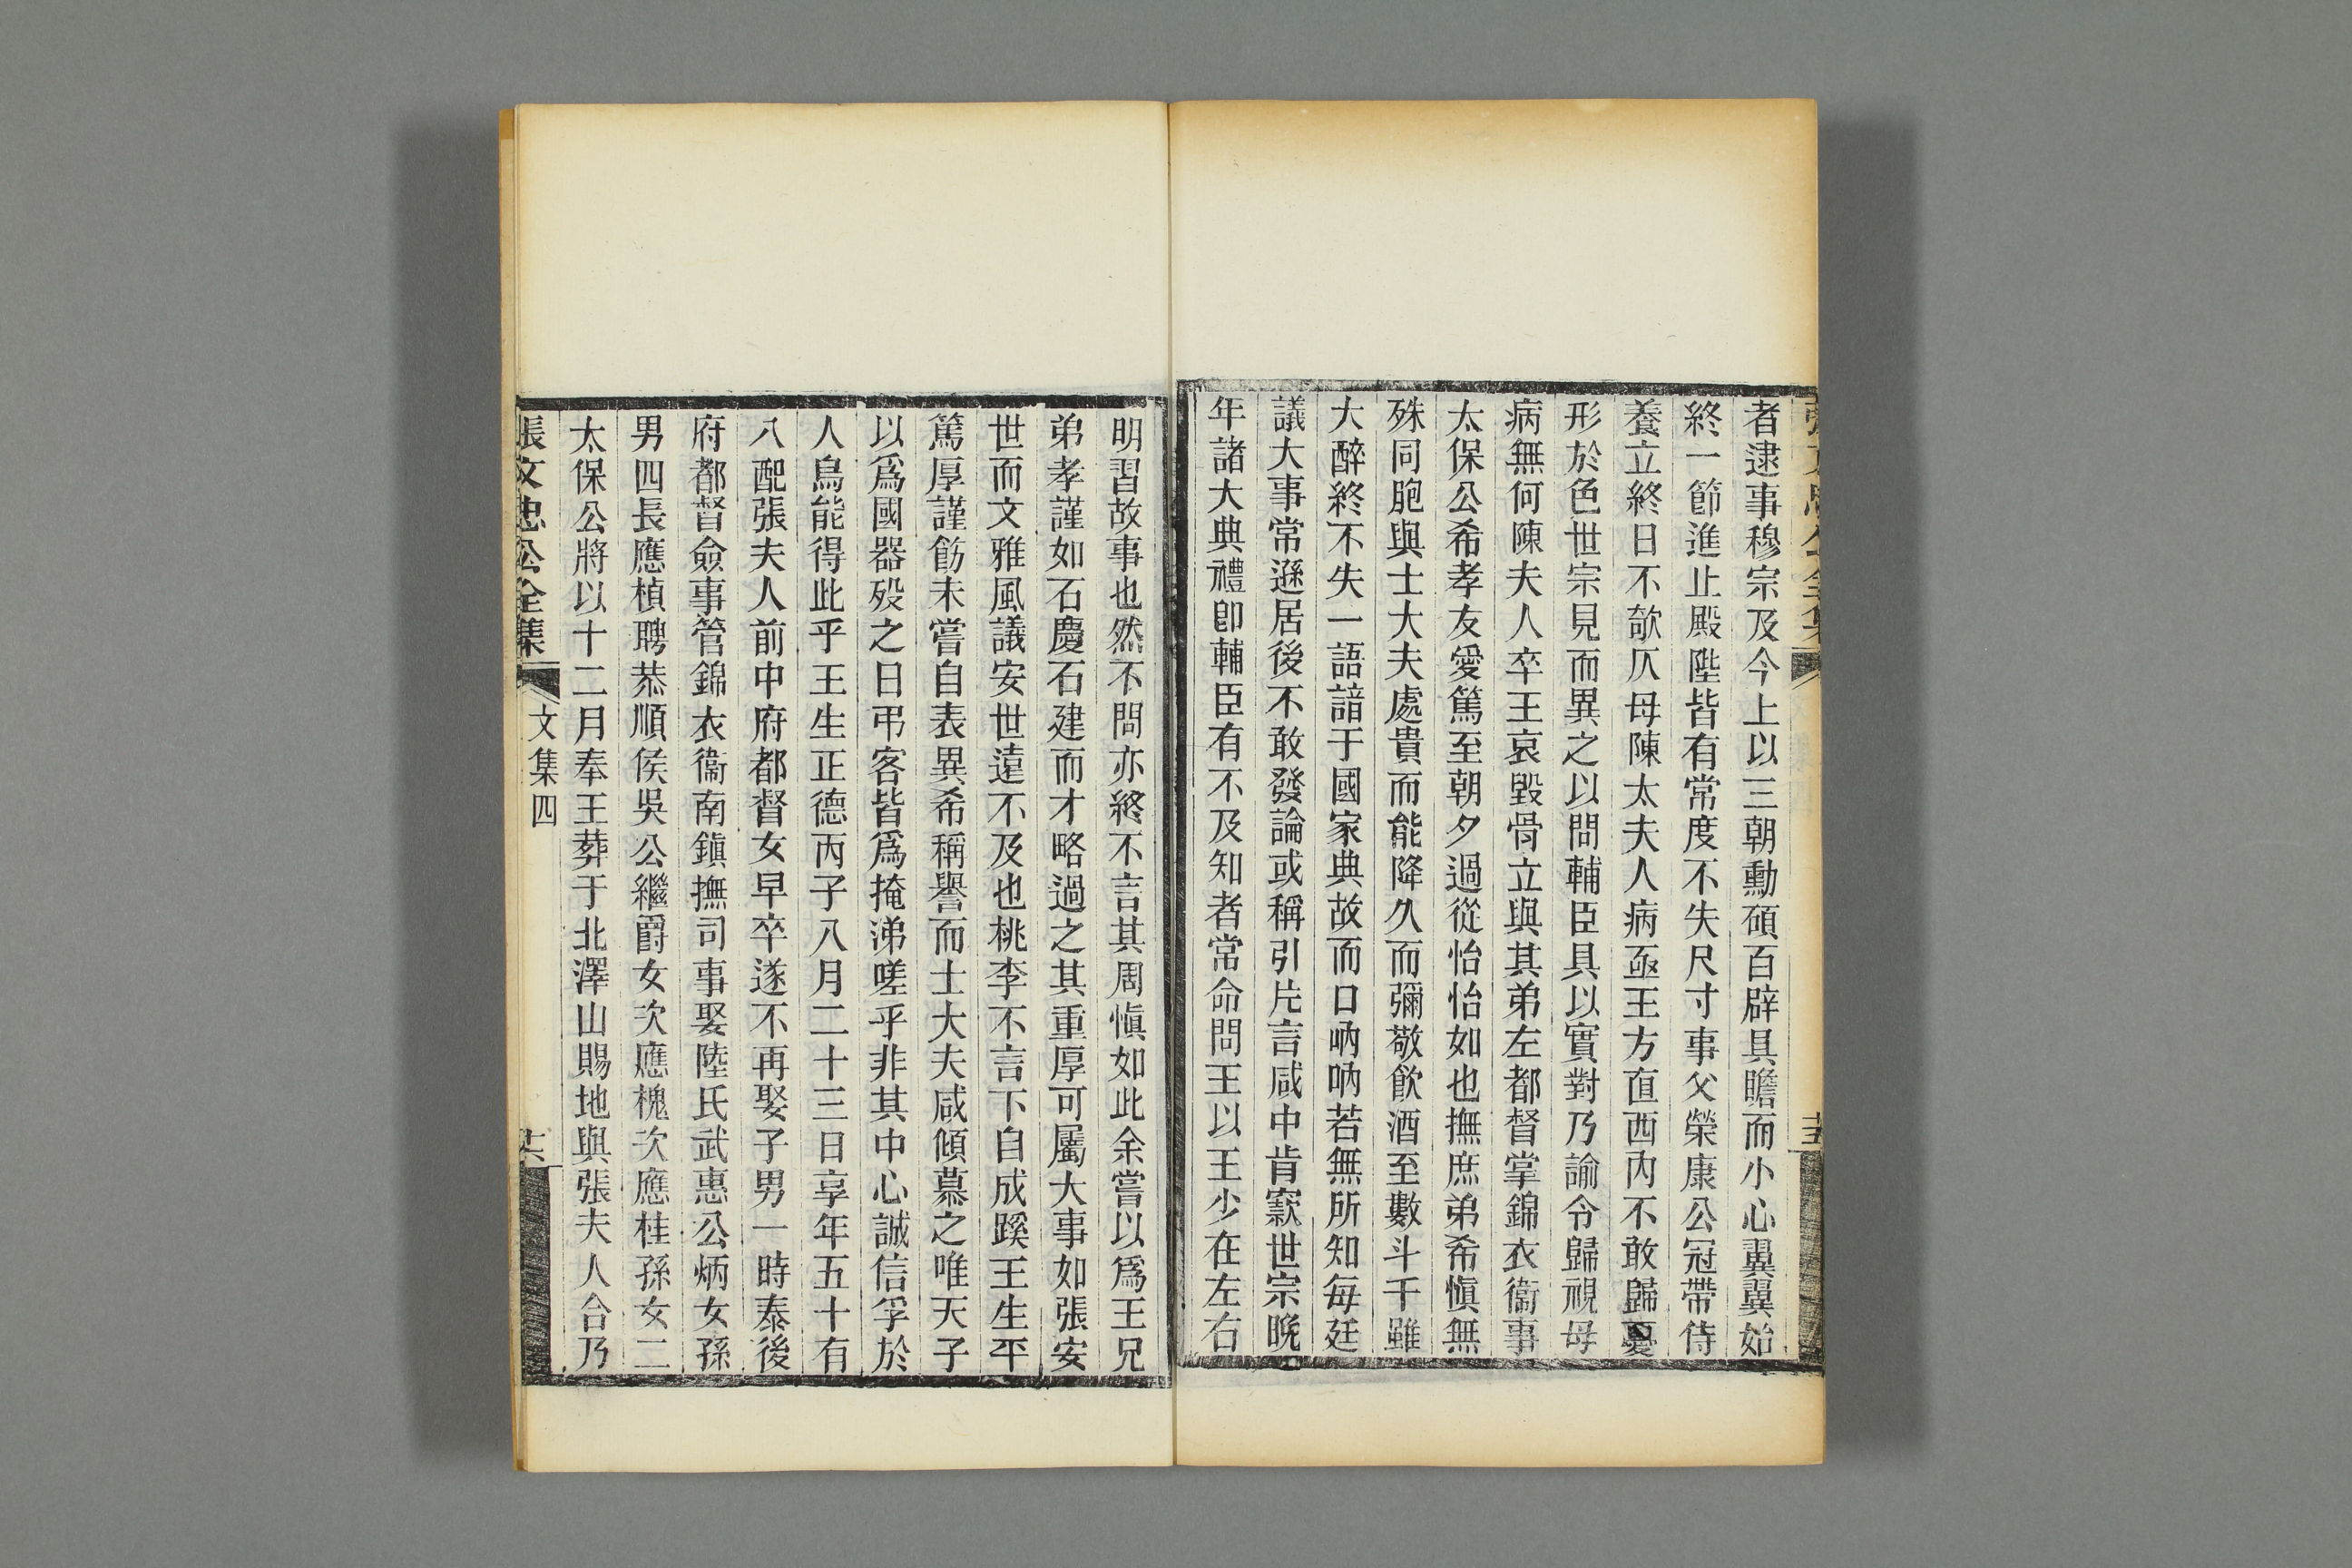 者逮事穆宗及今上以三朝勳碩百辟具瞻而小心翼翼始
終一節進止殿陛皆有常度不失尺寸事父榮康公冠帶侍
養立終日不欹仄母陳太夫人病亟王方直西內不敢歸憂
形於色世宗見而異之以問輔臣具以實對乃諭令歸視母
病無何陳夫人卒王哀毀骨立與其弟左都督掌錦衣衞事
太保公希孝友愛篤至朝夕過從怡怡如也撫庶弟希愼無
殊同胞與士大夫處貴而能降久而彌敬飲酒至數斗千雖
大醉終不失一語諳于國家典故而口吶吶若無所知每廷
議大事常遜居後不敢發論或稱引片言咸中肯窾世宗晚
年諸大典禮卽輔臣有不及知者常命問王以王少在左右
明習故事也然不問亦終不言其周愼如此余嘗以爲王兄
弟孝謹如石慶石建而才略過之其重厚可屬大事如張安
世而文雅風議安世遠不及也桃李不言下自成蹊王生平
篤厚謹飭未嘗自表異希稱譽而士大夫咸傾慕之唯天子
以爲國器歿之日弔客皆爲掩涕嗟乎非其中心誠信孚於
人烏能得此乎王生正德丙子八月二十三日享年五十有
八配張夫人前中府都督女早卒遂不再娶子男一時泰後
府都督僉事管錦衣衞南鎭撫司事娶陸氏武惠公炳女孫
男四長應楨聘恭順侯吳公繼爵女次應槐次應桂孫女二
太保公將以十二月奉王葬于北澤山賜地與張夫人合乃
張文忠公全集
文集四
十六